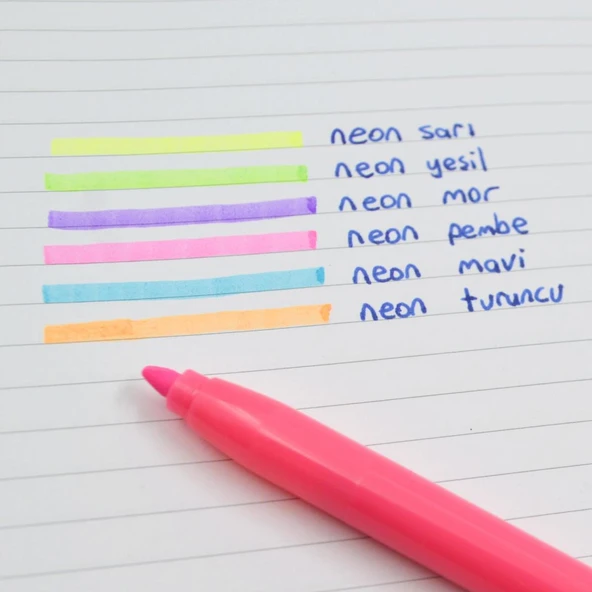 neon sarı
neon yesil
neon mor
neon pembe
neon mavi
neon turuncu